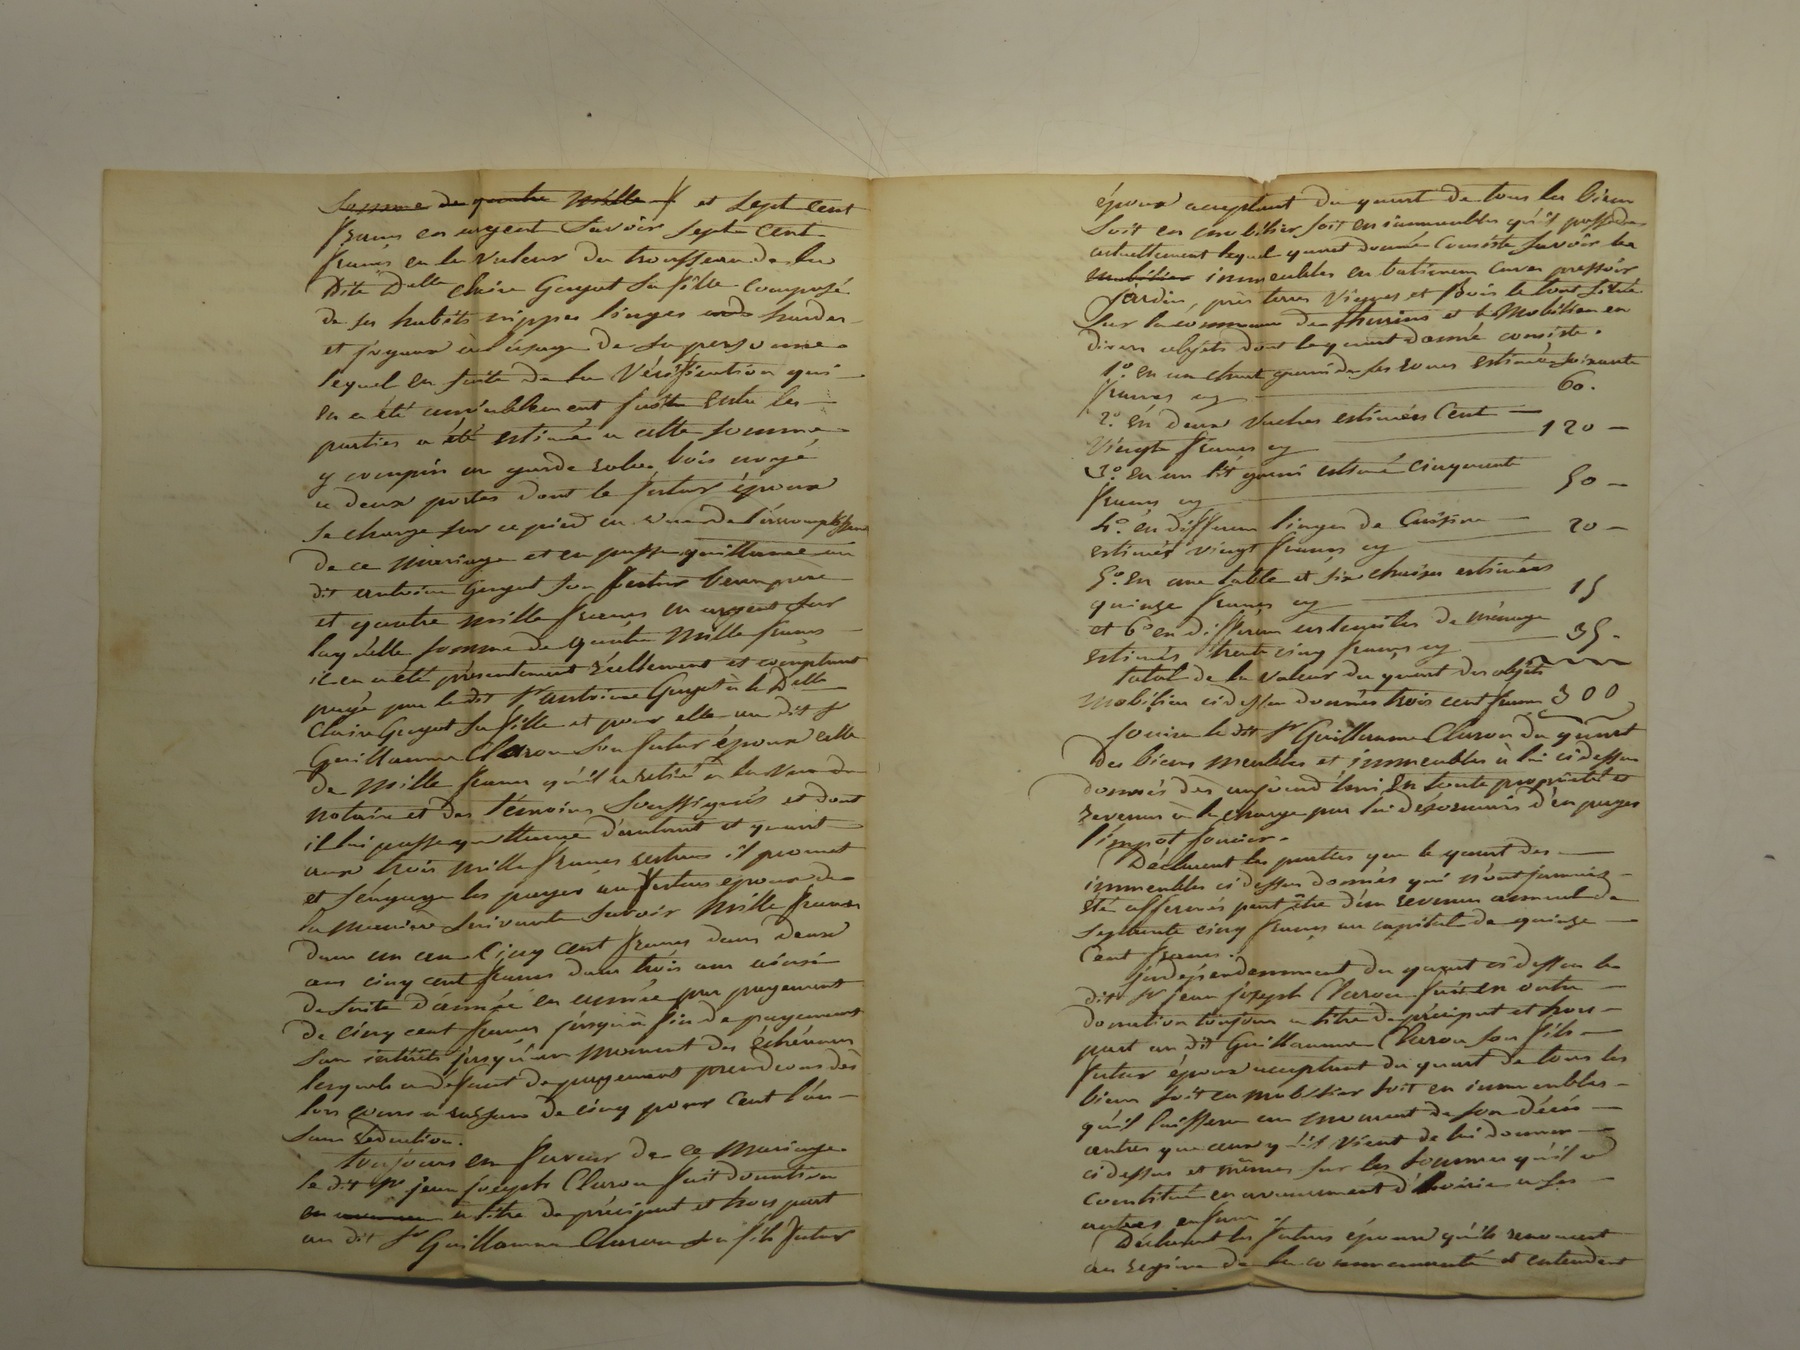 Somme de quatre mille et sept cent
francs en argent savoir sept cent
francs en la valeur du trousseau de la
dite Delle Claire Guyot sa fille composé
de ses habits nippes linges hardes
et joyaux à l'usage de sa personne
lequel en suite de la vérification qui
en a été amiablement faite entre les
parties a été estimé a cette somme
y compris un garde robe bois noyé
a deux portes dont le futur époux
se charge sur ce pied en vue de l'accomplissement
de ce mariage et en passe quittance au
dit antoine Guyot son futur beau père
et quatre mille francs en argent sur
laquelle somme de quatre mille francs
il en a été présentement réellement et comptant
payé par le dit Sr antoine Guyot à la Delle
Claire Guyot sa fille et pour elle au dit Sr
Guillaume Claron son futur époux celle
de mille francs qu'il a retiré a la vue du
notaire et des témoins soussignés et dont
il lui passe quittance d'autant et quant
aux trois mille francs restans il promet
et s'engage les payer au futur époux de
la manière suivante savoir mille francs
dans un an cinq cent francs dans deux
ans cinq cent francs dans trois ans ainsi
de suite d'année en année par payement
de cinq cent francs jusqu'à fin de payement
sans intérêts jusqu'au moment des échéances
lesquels a défaut de payement prendront dès
lors cours a raison de cinq pour cent l'an
sans rédaction.
toujours en faveur de ce mariage
le dit Sr jean joseph Claron fait donation
en a titre de préciput et hors part
au dit Sr Guillaume Claron son fils futur
époux acceptant du quart de tous les biens
soit en mobilier soit en immeubles qu'il possède
actuellement lequel quart donné consiste savoir les
mobilier immeubles en batimens cuves pressoir
jardin, près terres vignes et bois le tout situé
sur la commune de thurins et le mobilier en
divers objets dont le quart donné consiste.
1o. en un char garni de ses roues estimé soixante
francs cy 60.
2o. en deux vaches estimées cent
vingt francs cy 120
3o. en un lit garni estimé cinquante
francs cy 50
4o. en différens linges de cuisine
estimés vingt francs cy 20
5o. en une table et six chaises estimées
quinze francs cy 15
et 6o en différens ustensiles de ménage
estimés trente cinq francs cy 35.
total de la valeur du quart des objets
mobiliers ci dessus donnés trois cent francs 300
jouira le dit Sr Guillaume Claron du quart
des biens meubles et immeubles à lui ci dessus
donnés dès aujourd'hui en toute propriété et
revenus à la charge par lui désormais d'en payer
l'impot foncier.
Déclarent les parties que le quart des
immeubles ci dessus donnés qui n'ont jamais
été affermés peut être d'un revenu annuel de
septante cinq francs au capital de quinze
cent francs.
indépendamment du quart ci dessus le
dit Sr jean joseph Claron fait en outre
donation toujours a titre de préciput et hors
part au dit Guillaume Claron son fils
futur époux acceptant du quart de tous les
biens soit en mobilier soit en immeubles
qu'il laissera au moment de son décès
autres que ceux qu'il vient de lui donner
ci dessus et mêmes sur les sommes qu'il a
constitué en avancement d'hoirie a ses
autres enfans.
Déclarent les futurs époux qu'ils renoncent
au régime de la communauté et entendent